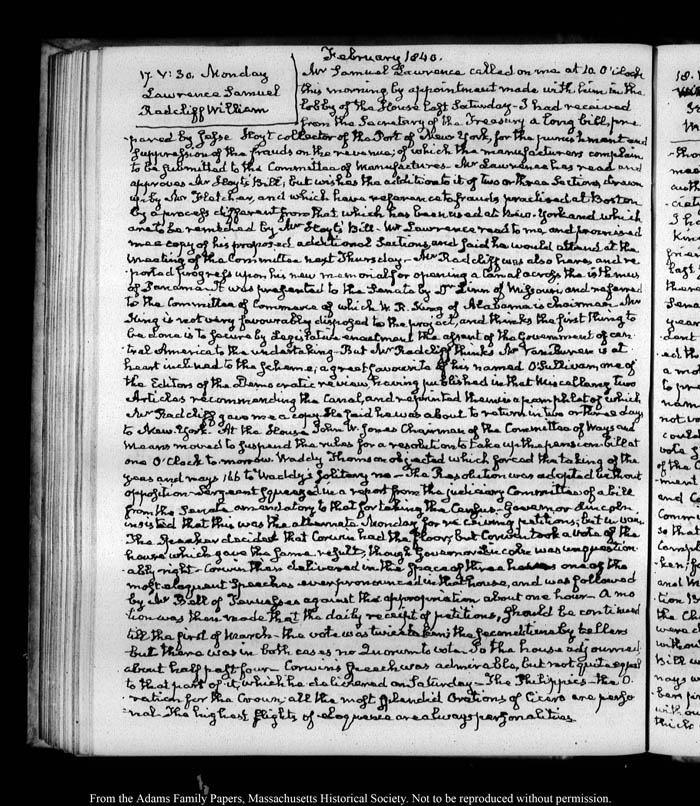 February 1840.
17. V: 30. Monday
Lawrence Samuel
Radcliff William
Mr Samuel Lawrence called on me at 10. O'Clock
this morning by appointment made with him in the
lobby of the House last Saturday. I had received
from the Secretary of the Treasury a long bill, pre-
pared by Jesse Hoyt collector of the Port of New York, for the punishment and
suppression of the frauds on the revenue; of which the manufacturers complain
to be submitted to the Committee of Manufactures. Mr Lawrence has read and
approves Mr Hoyt's Bill; but wishes the addition to it of two or three Sections, drawn
up by Mr Fletcher, and which have reference to frauds practised at Boston
by a process different from that which has been used at New-York and which
are to be remedied by Mr Hoyt's Bill. Mr Lawrence read to me and promised
me a copy of his proposed additional Sections, and said he would attend at the
meeting of the Committee next Thursday. Mr Radcliff was also here, and re-
ported progress upon his new memorial for opening a Canal across the isthmus
of Panama. It was presented to the Senate by Dr Linn of Missouri, and referred
to the Committee of Commerce of which W. R. King of Alabama is chairman. Mr
King is not very favourably disposed to the project, and thinks the first thing to
be done is to secure by Legislative enactment the assent of the Government of cen-
tral America to the undertaking. But Mr Radcliff thinks Mr Van Buren is at
heart inclined to the scheme; a great favourite of his named O'Sullivan, one of
the Editors of the Democratic review, having published in that Miscellany two
Articles recommending the Canal, and reprinted them in a pamphlet of which
Mr Radcliff gave me a copy. He said he was about to return in two or three days
to New-York. At the House John W. Jones Chairman of the Committee of Ways and
Means moved to suspend the rules for a resolution to take up the pension bill at
one O'Clock to morrow. Waddy Thompson objected which forced the taking of the
yeas and nays 166 to Waddy's solitary no. The Resolution was adopted without
opposition. Sergeant squeezed in a report from the judiciary Committee of a bill
from the Senate amendatory to that for taking the Census. Governor Lincoln
insisted that this was the alternate Monday for receiving petitions, but in vain.
The Speaker decided that Corwin had the floor, but Corwin took a vote of the
house which gave the same result, though Governor Lincoln was unquestion-
ably right. Corwin then delivered in the space of three hours one of the
most eloquent Speeches ever pronounced in that house, and was followed
by Mr Bell of Tennessee against the appropriation about one hour. A mo-
tion was then made that the daily receipt of petitions, should be continued
till the first of March. the vote was twice taken; the second time by tellers
but there was in both cases no Quorum to vote. So the house adjourned
about half past four. Corwin's speech was admirable, but not quite equal
to that part of it, which he delivered on Saturday. The Philippics. the O-
ration for the Crown. all the most splendid Orations of Cicero are perso-
nal. The highest flights of eloquence are always personalities.
From the Adams Family Papers, Massachusetts Historical Society. Not to be reproduced without permission.